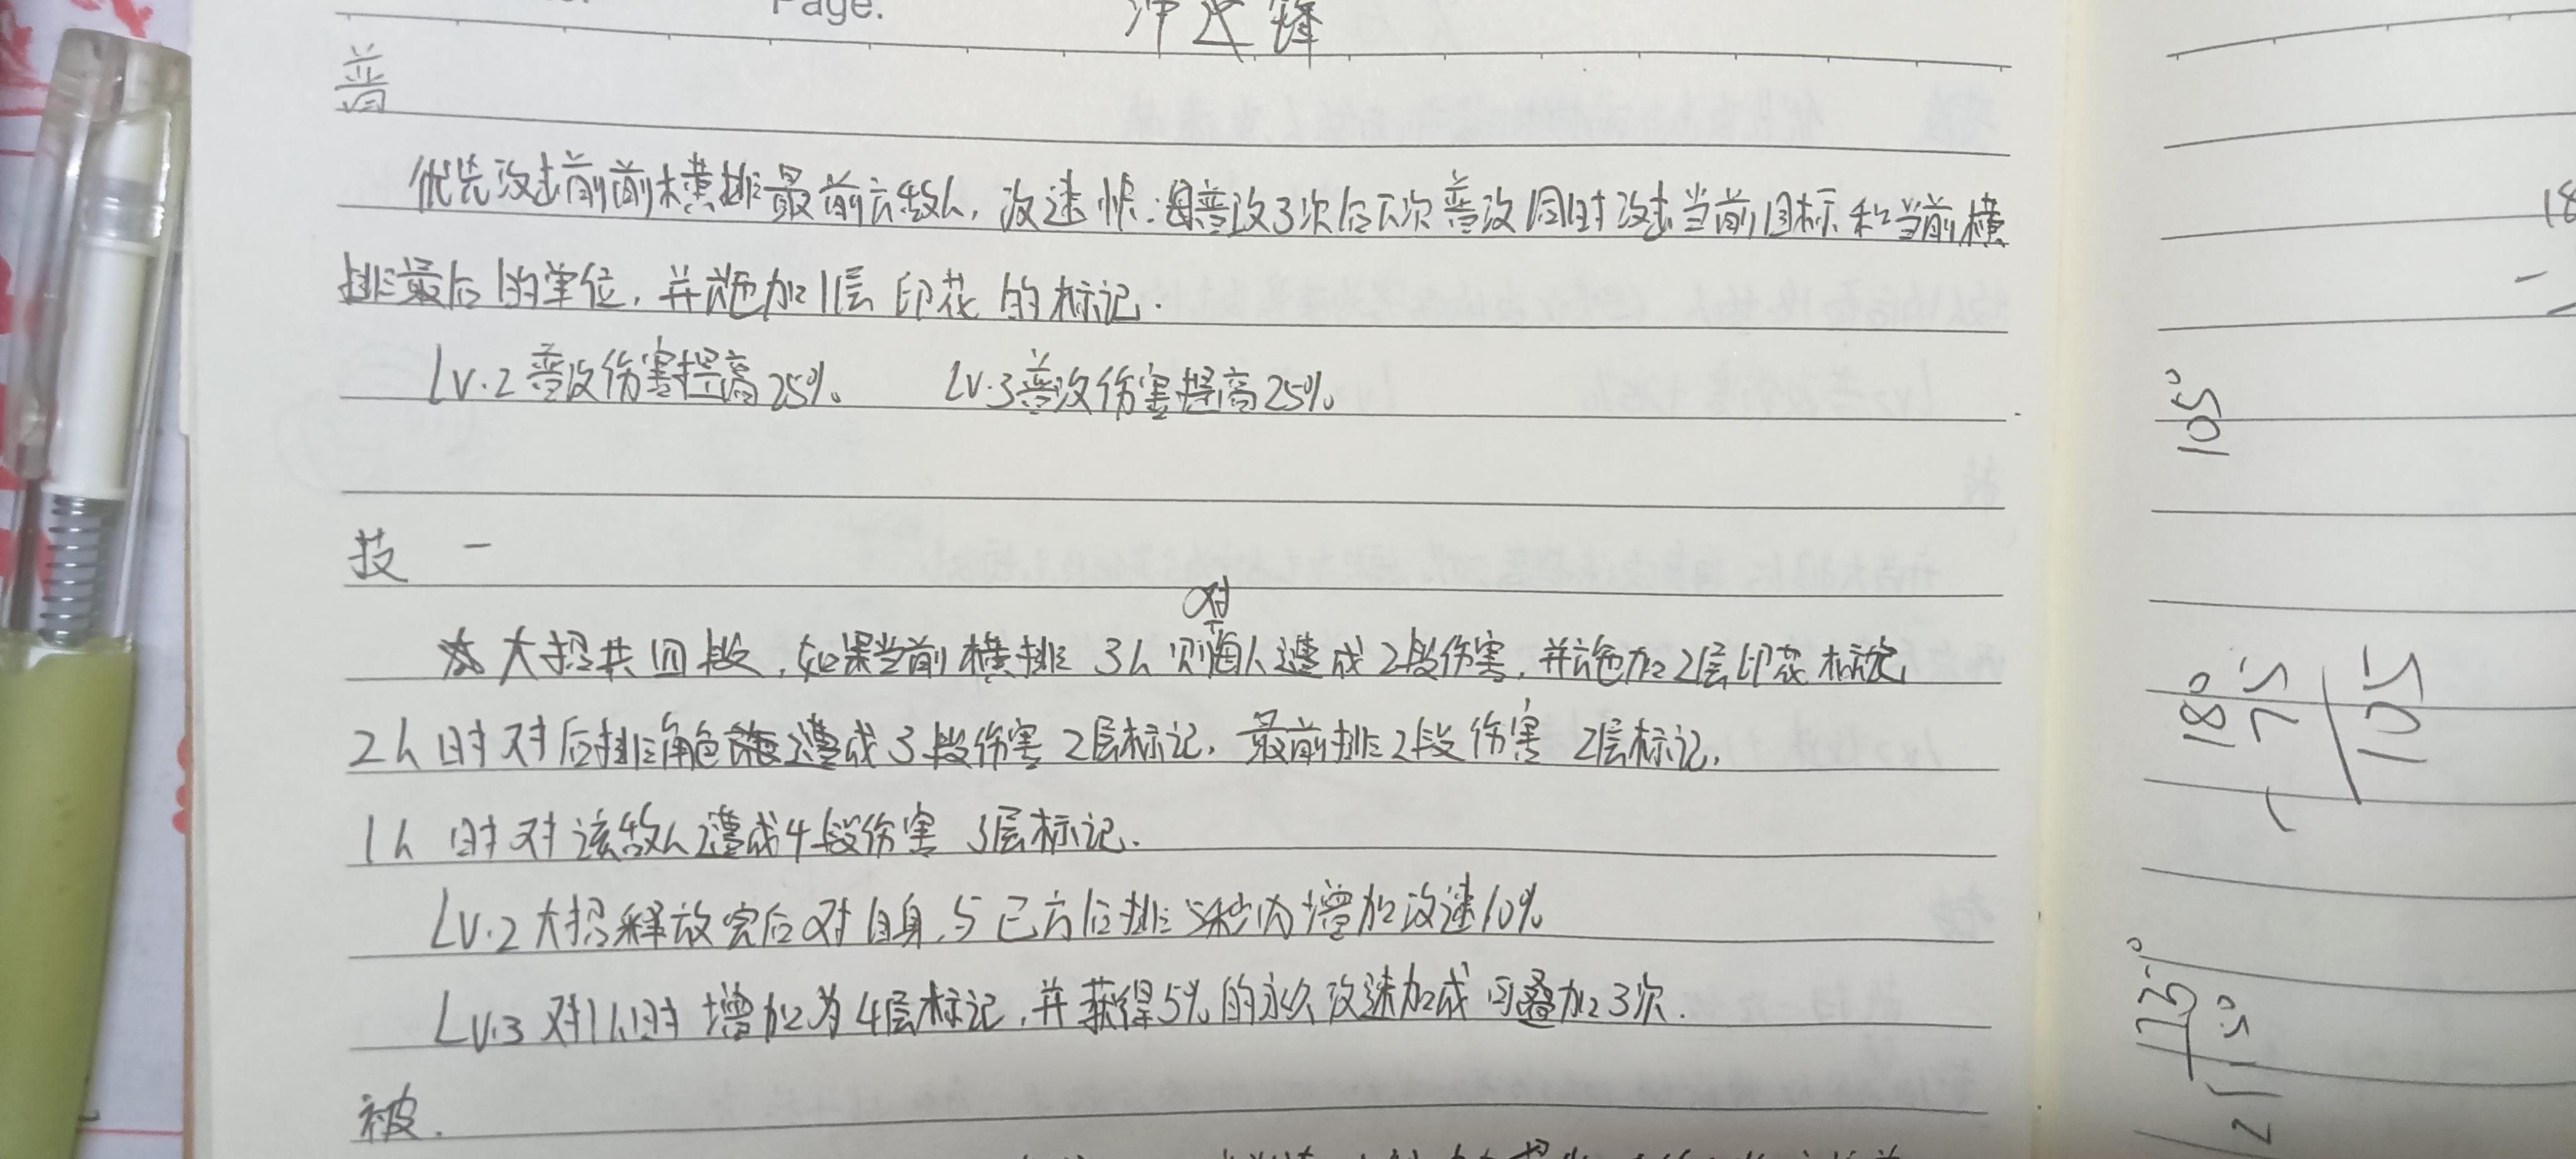 Page.
普
优先攻击前前横排最前方敌人，攻速快：每普攻3次后下次普攻同时攻击当前目标和当前横
排最后的单位，并施加1层印花的标记.
Lv.2普攻伤害提高25%。 Lv.3普攻伤害提高25%。
技 一
大招共四段，如果当前横排3人则对每人遭成2段伤害，并施加2层印花标记，
2人时对后排角色遭成3段伤害2层标记，最前排2段伤害2层标记，
1人时对该敌人遭成4段伤害 3层标记.
Lv.2大招释放完后对自身与己方后排5秒内增加攻速10%
Lv.3对1人时增加为4层标记，并获得5%的永久攻速加成可叠加3次.
被.
105°
180
75
105